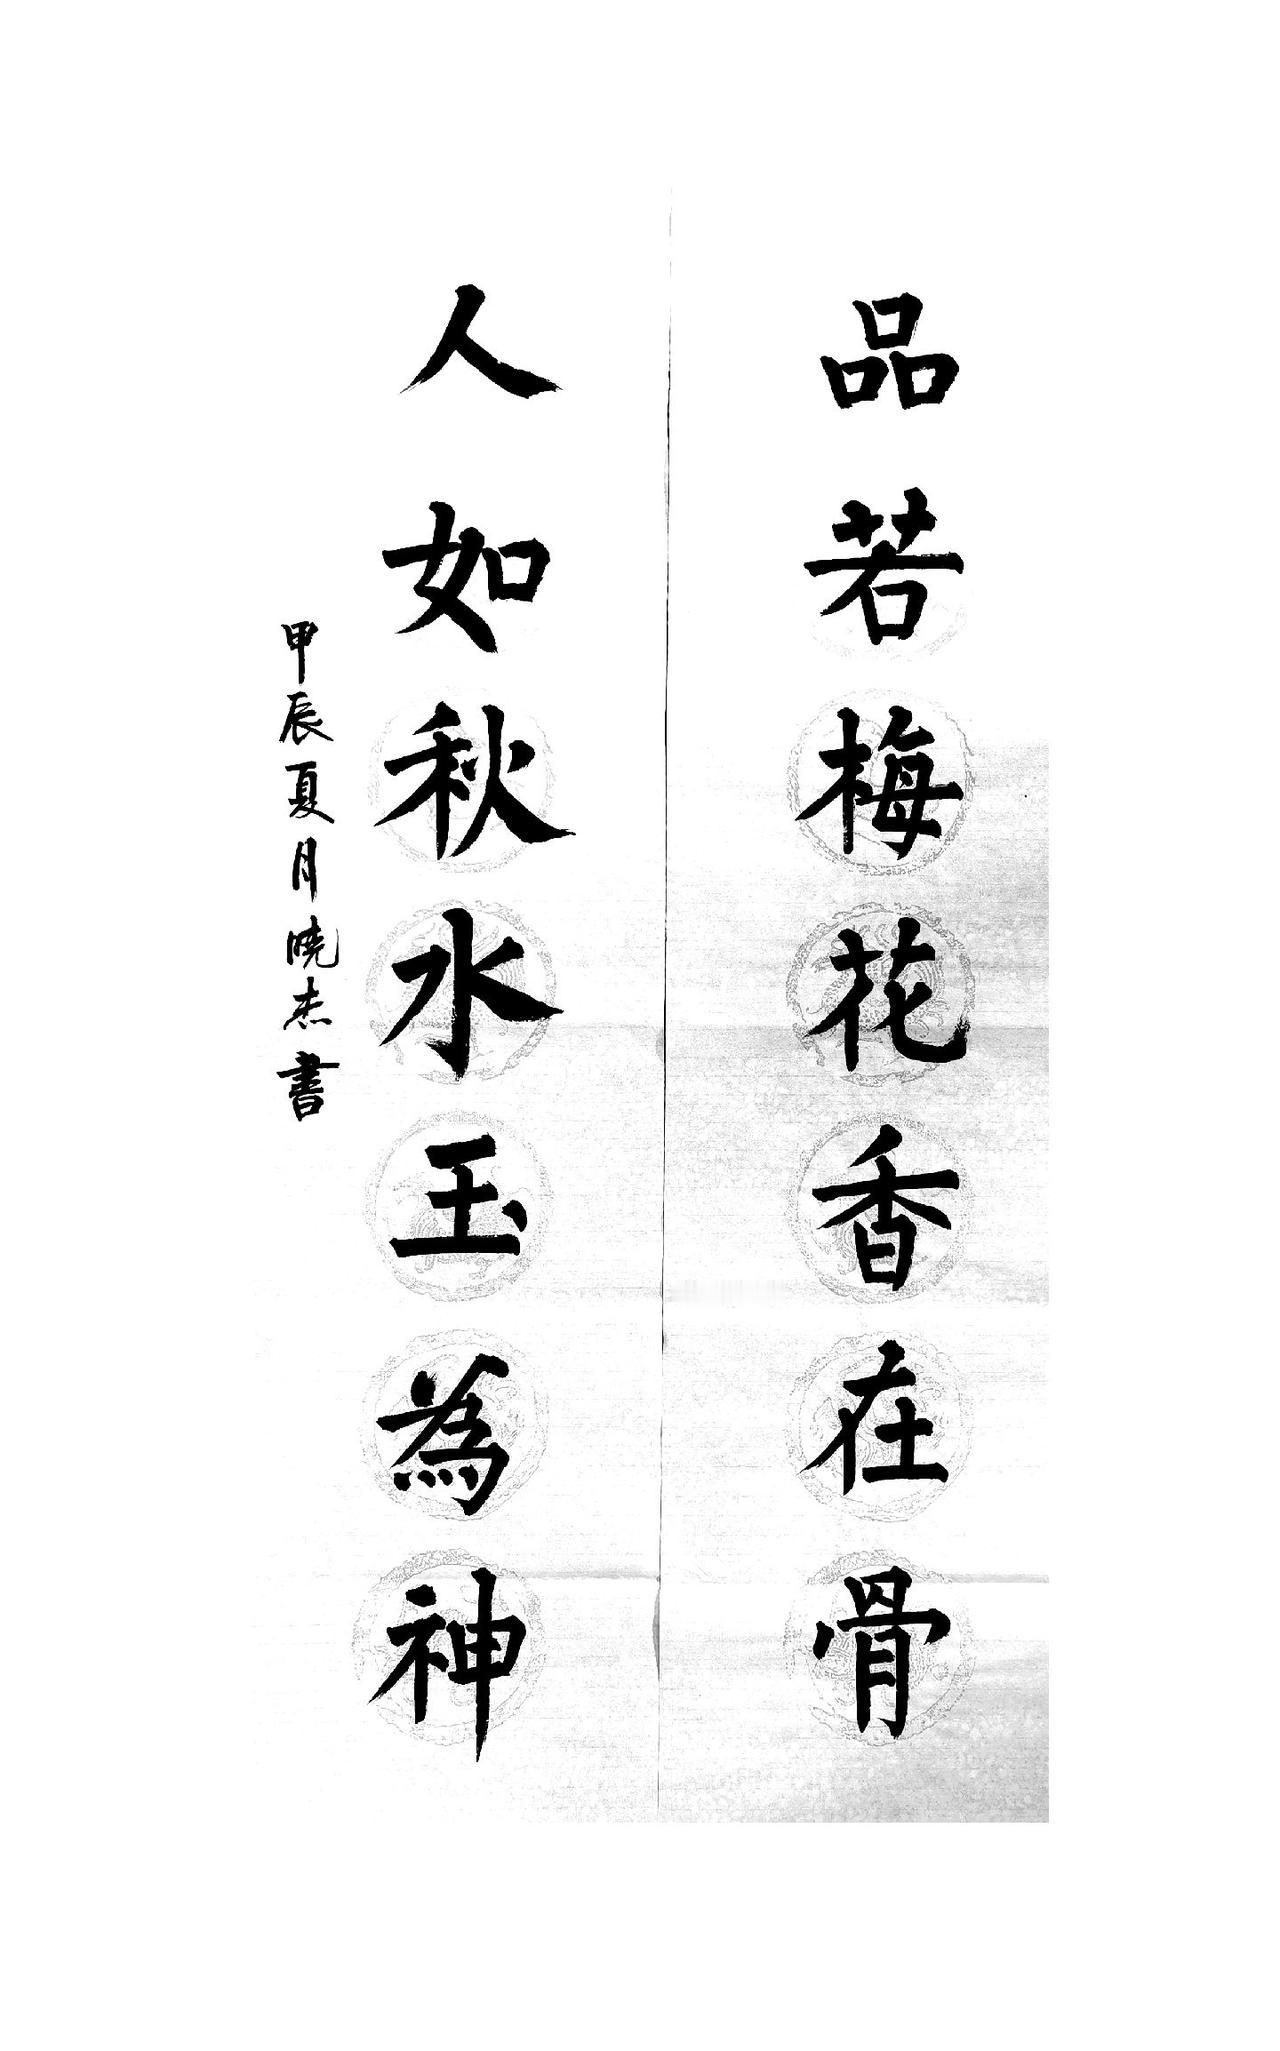 品若梅花香在骨
人如秋水玉為神
甲辰夏月曉杰書